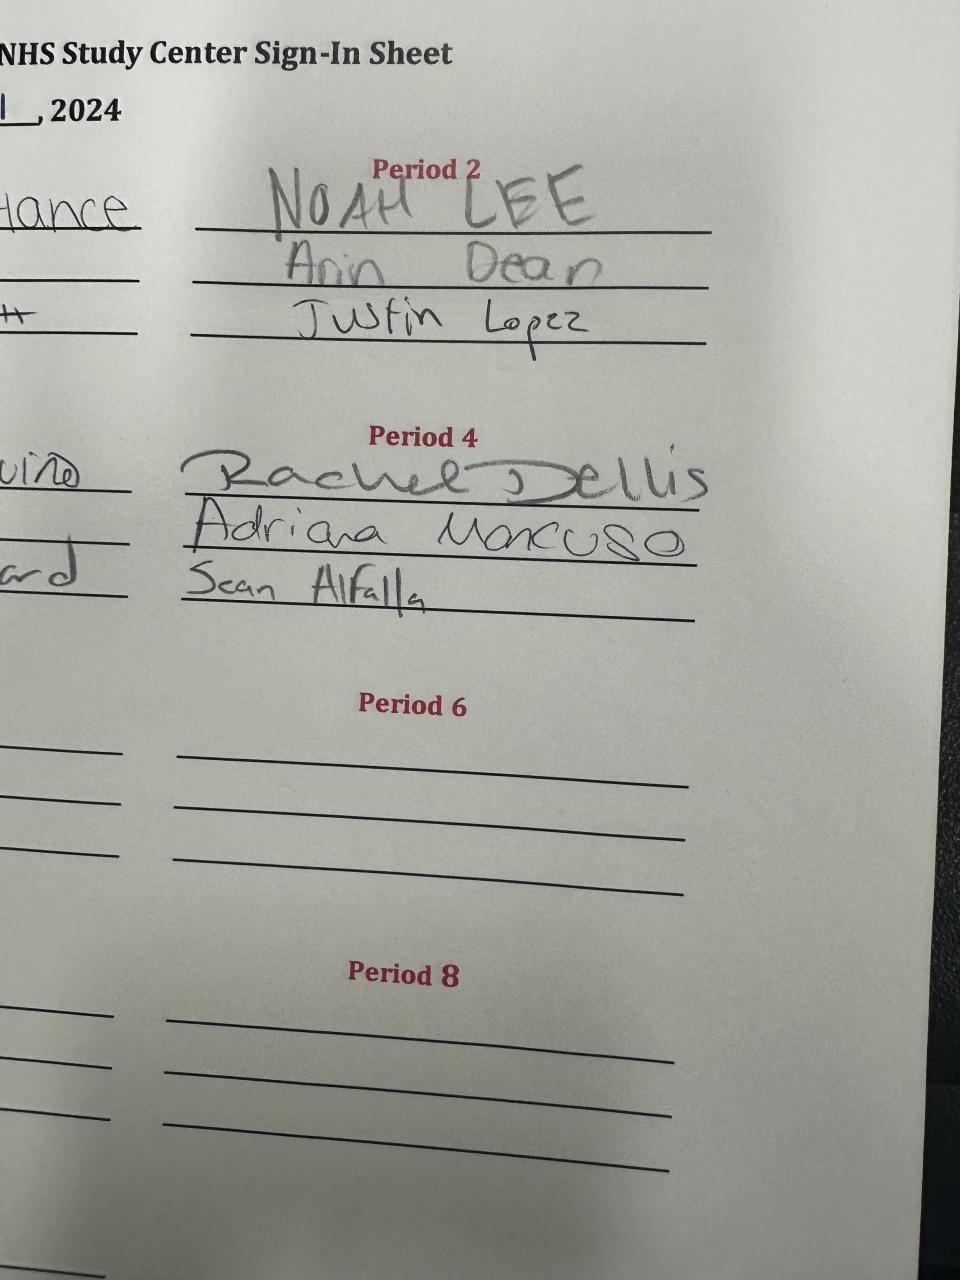 NHS Study Center Sign-In Sheet
, 2024
Period 2
NOAH LEE
Arin Dean
Justin Lopez
Period 4
Rachel Dellis
Adriana Mancuso
Sean Alfalla
Period 6
Period 8